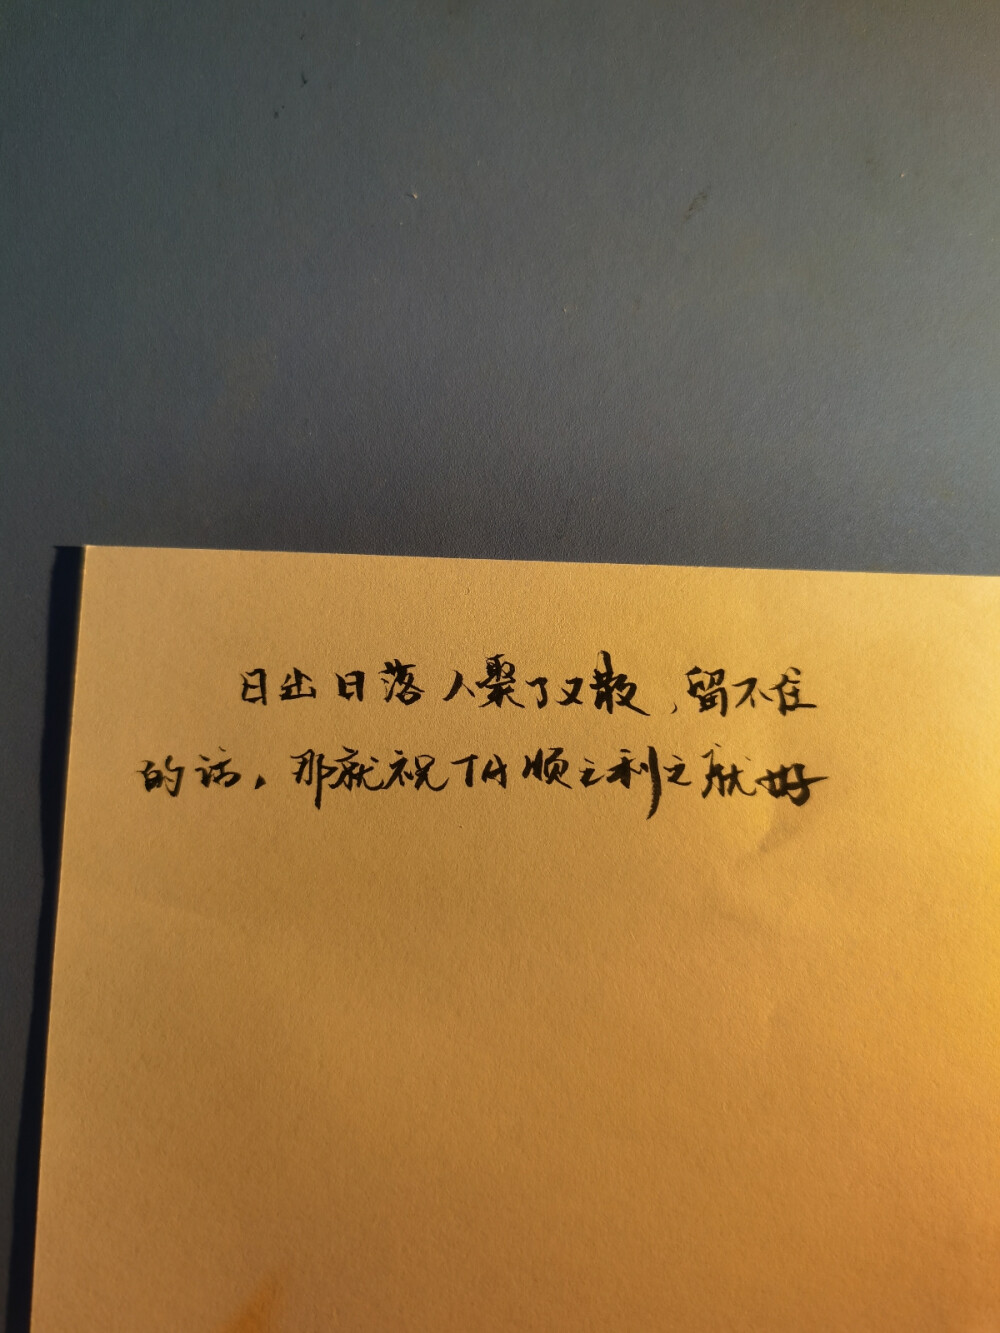 日出日落人聚了又散,留不住
的话,那就祝TA顺々利々就好